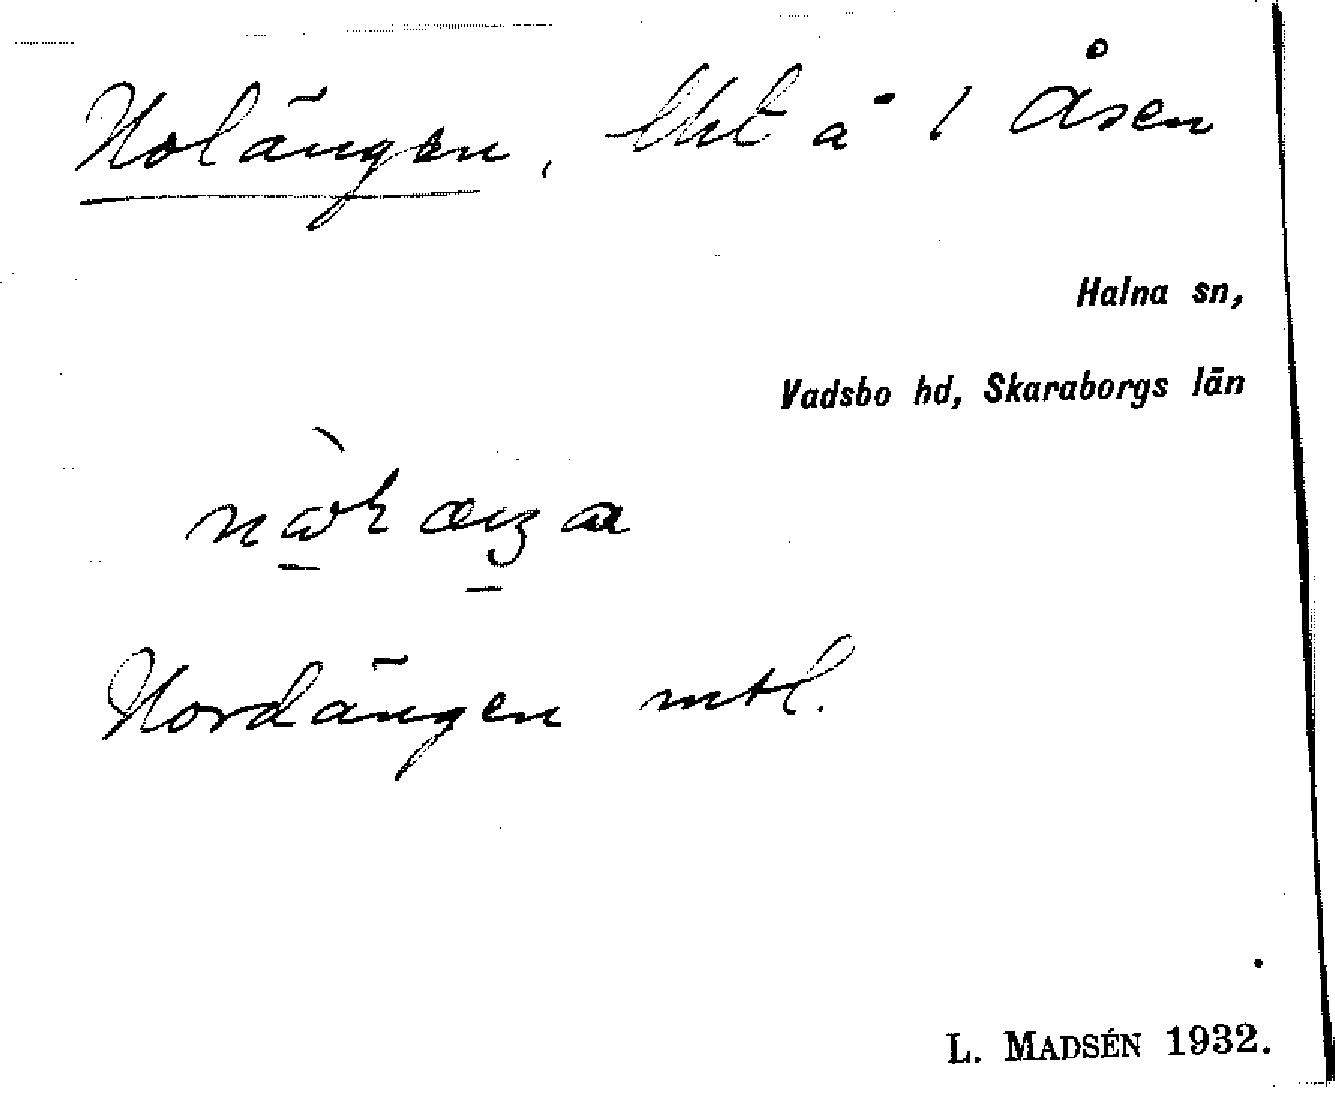 Nolängen, lht å 1 Åsen
Halna sn,
Vadsbo hd, Skaraborgs län
Nordängen mtl.
L. MADSÉN 1932.